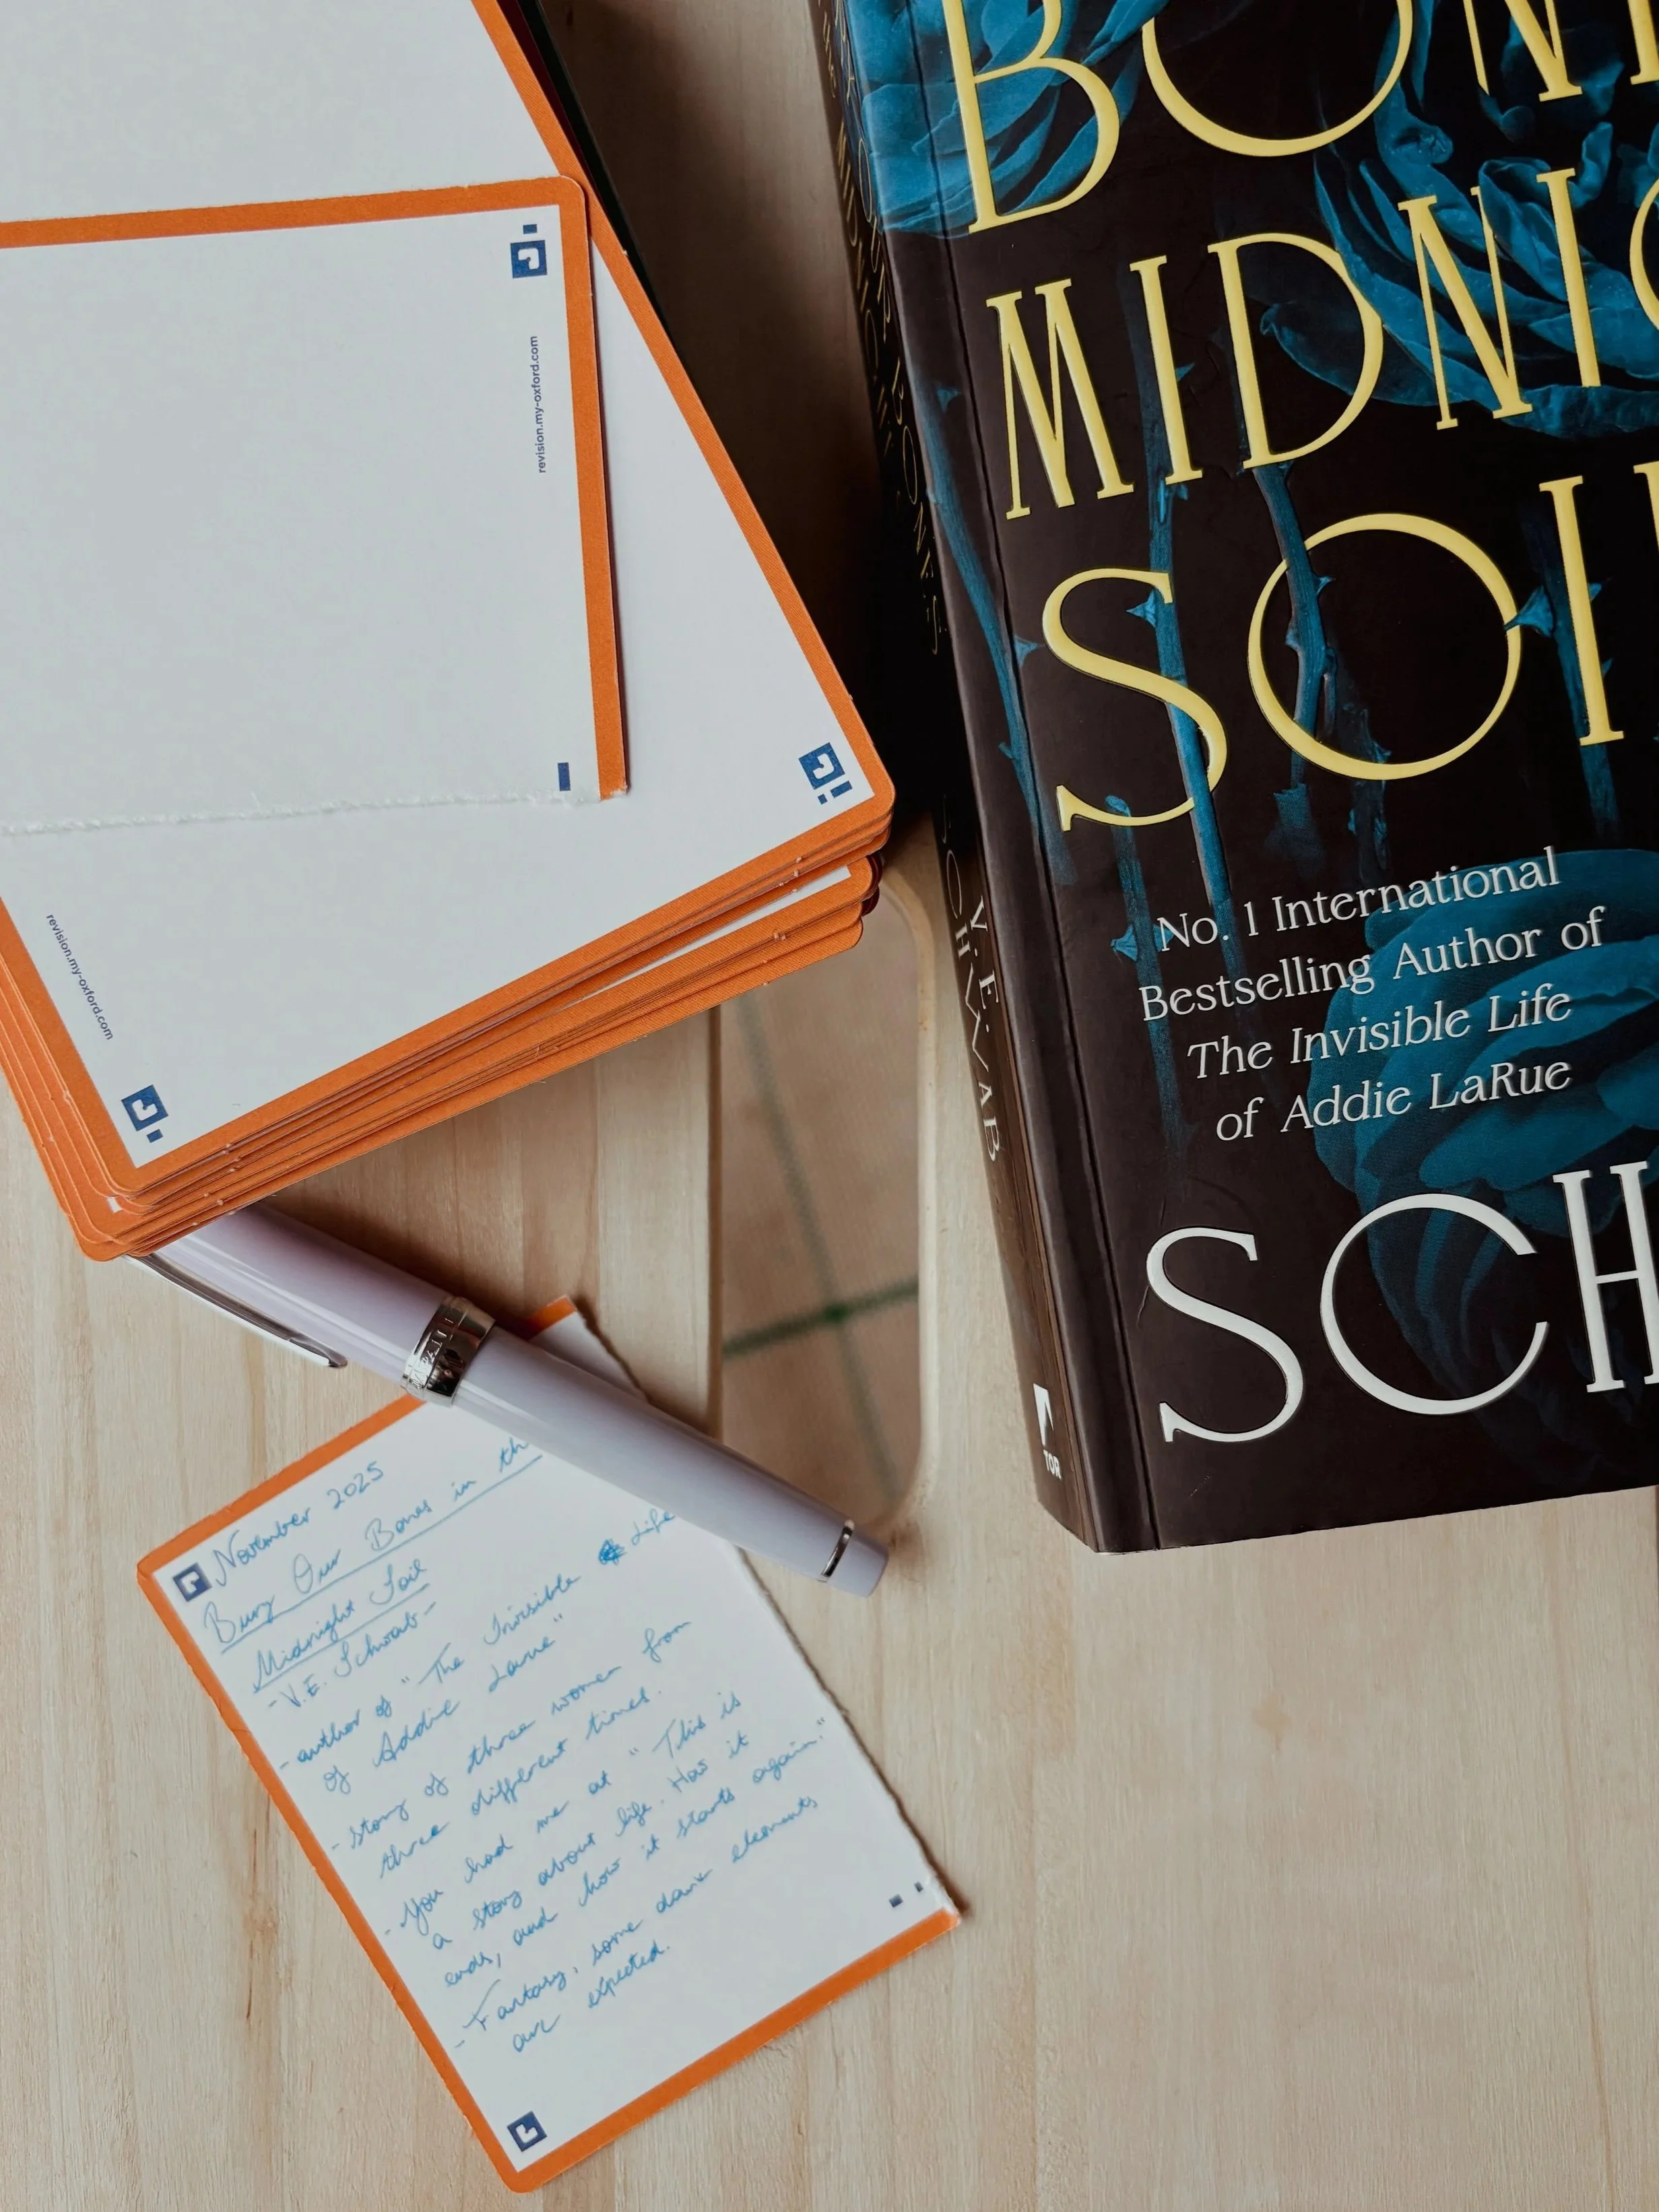 revision.my-oxford.com
revision.my-oxford.com
BON
MIDNIG
SOI
No. 1 International
Bestselling Author of
The Invisible Life
of Addie LaRue
SCH
OUR BONES
MIDNIGHT
V. E.
SCHWAB
TOR
November 2025
Bury Our Bones in th
Midnight Soil
- V.E. Schwab -
- author of "The Invisible Life
of Addie Larue"
- story of three women from
three different times.
- You had me at "This is
a story about life. How it
ends, and how it starts again."
- Fantasy, some dark elements
are expected.